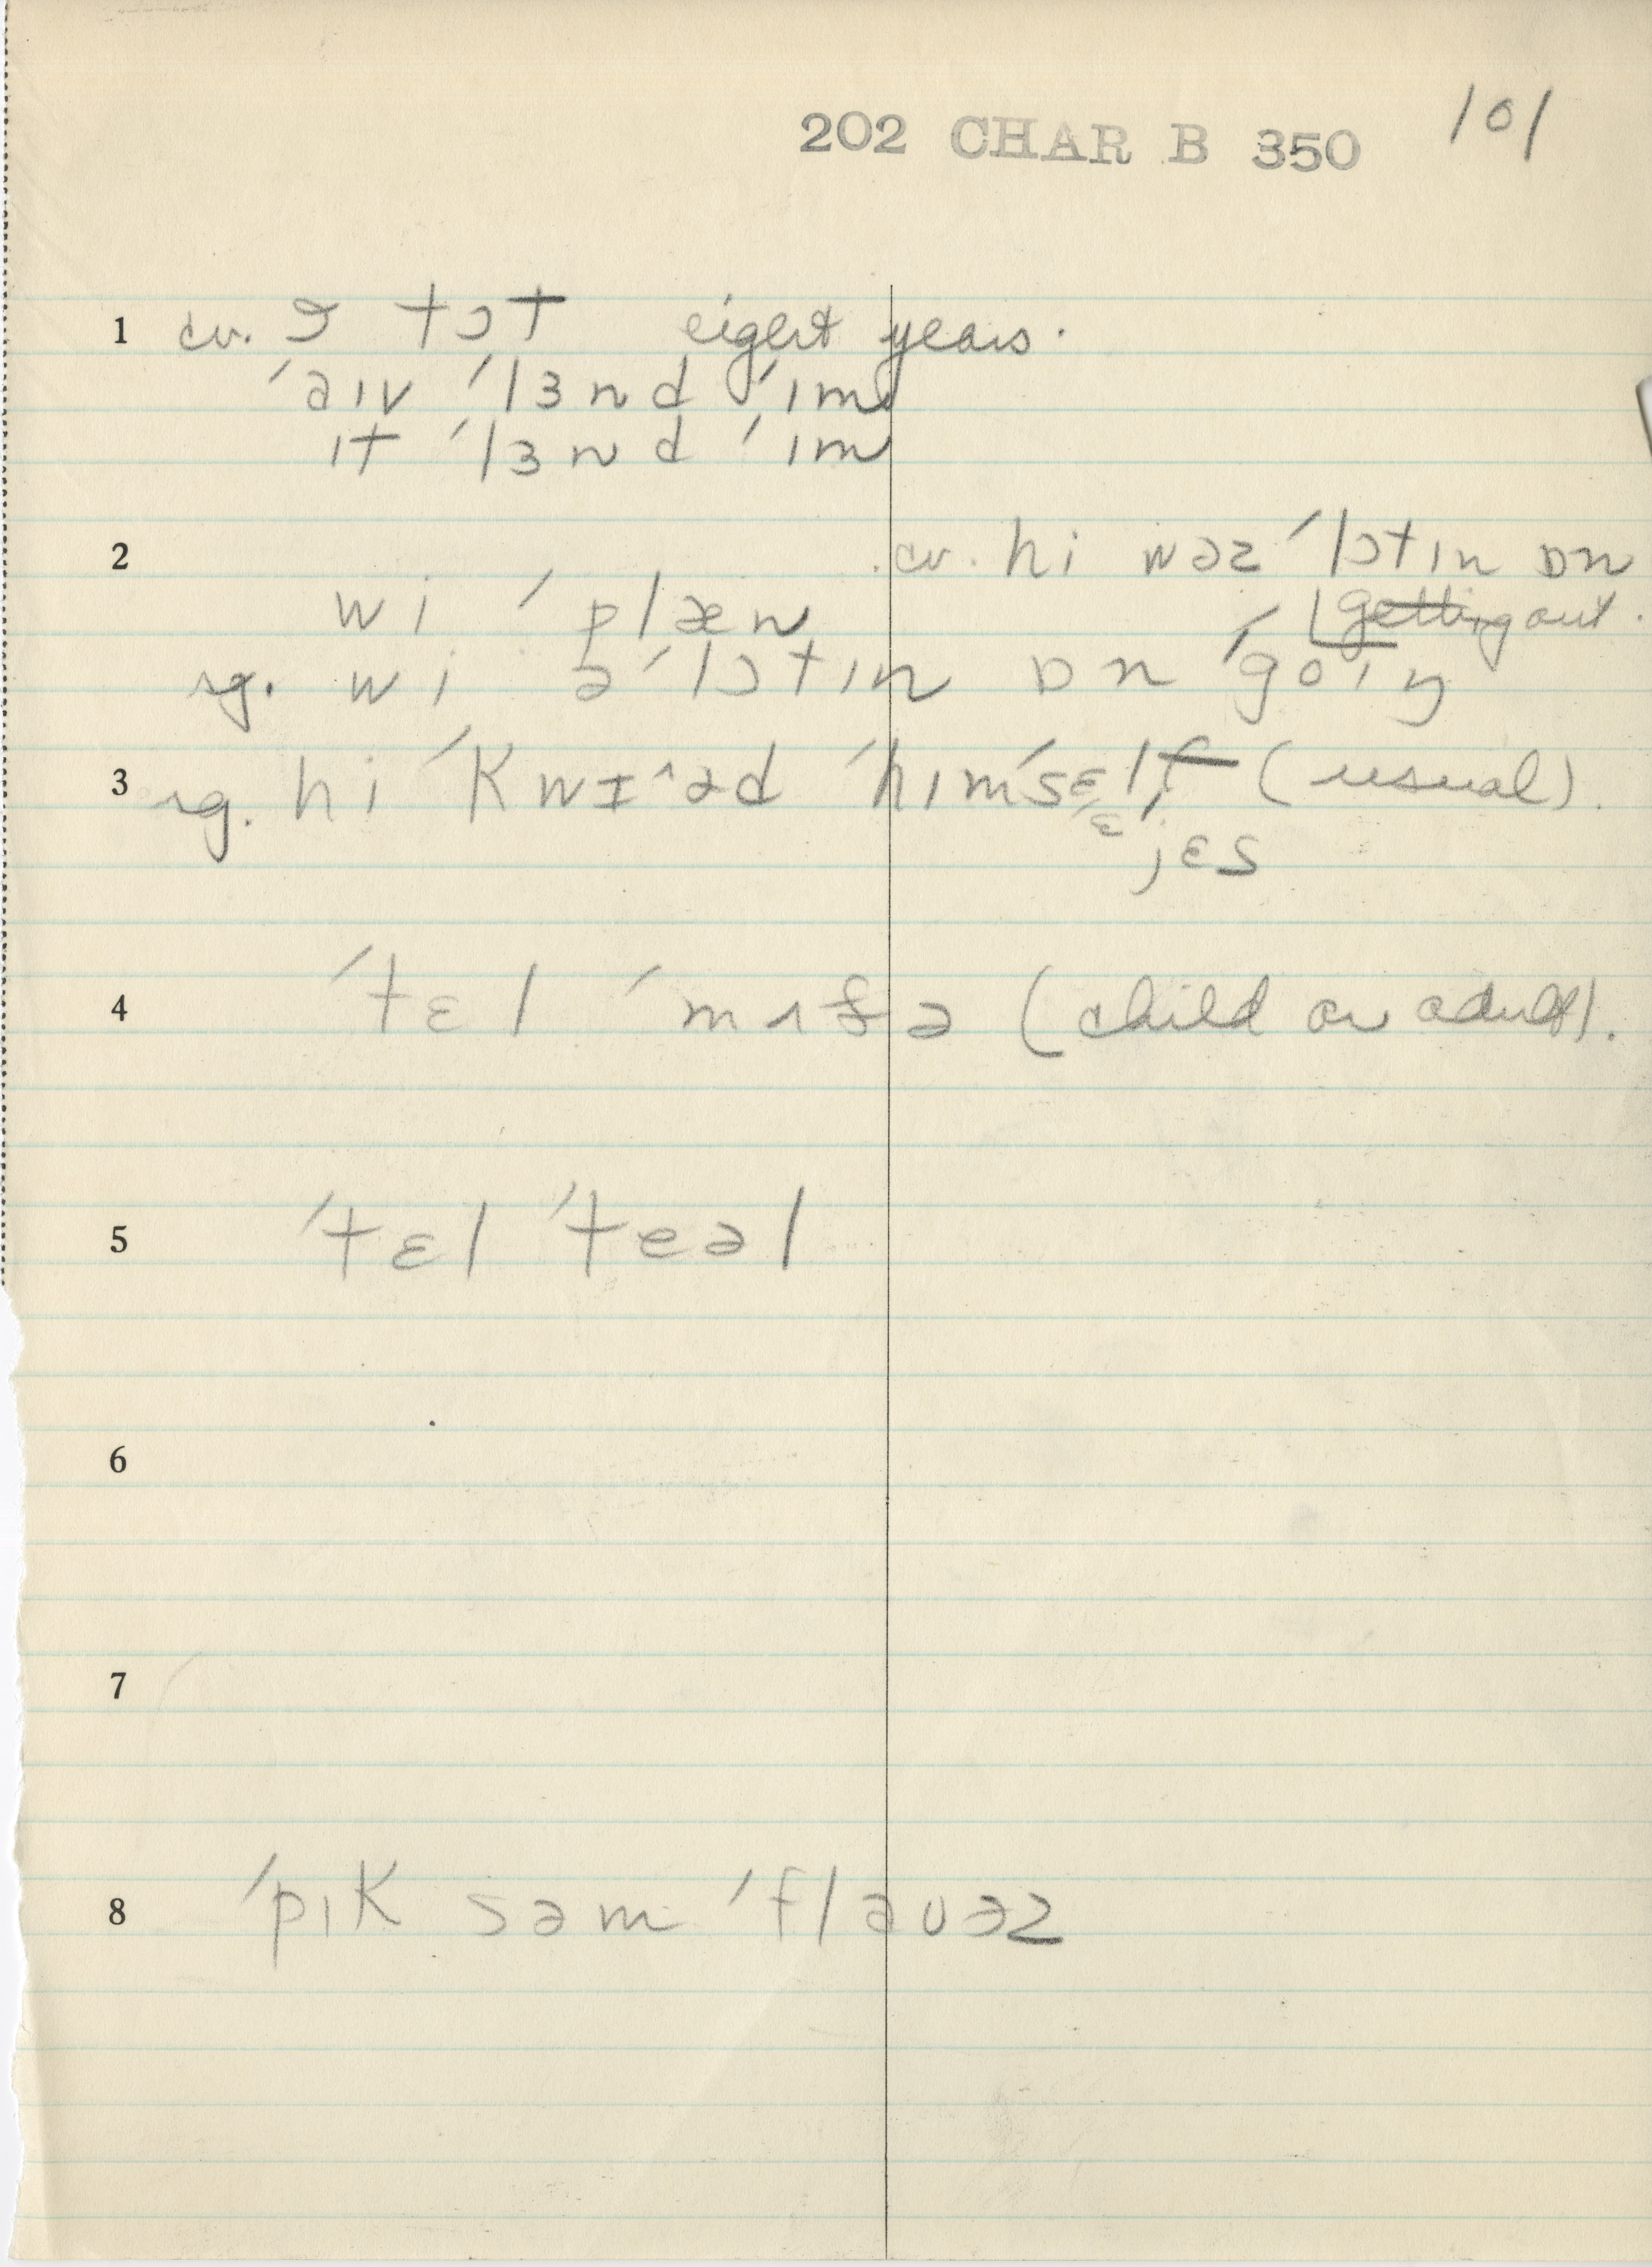 202 CHAR B 350 101
1 cv. ɔ tɔt eight years.
ˈaɪv ˈlɜnd ˈɪm
ɪt ˈlɜnd ˈɪm
2 cv. hi wəz ˈlɔtɪn ɒn
getting out.
wi ˈplæn
sg. wi əˈlɔtɪn ɒn ˈgoɪŋ
3 sg. hi ˈkwɪ^əd ˈhɪmˈsɛlf (usual).
ɛ jɛs
4 ˈtɛl ˈmʌðə (child or adult).
5 ˈtɛl ˈteəl
6
7
8 ˈpɪk səm ˈflaʊəz